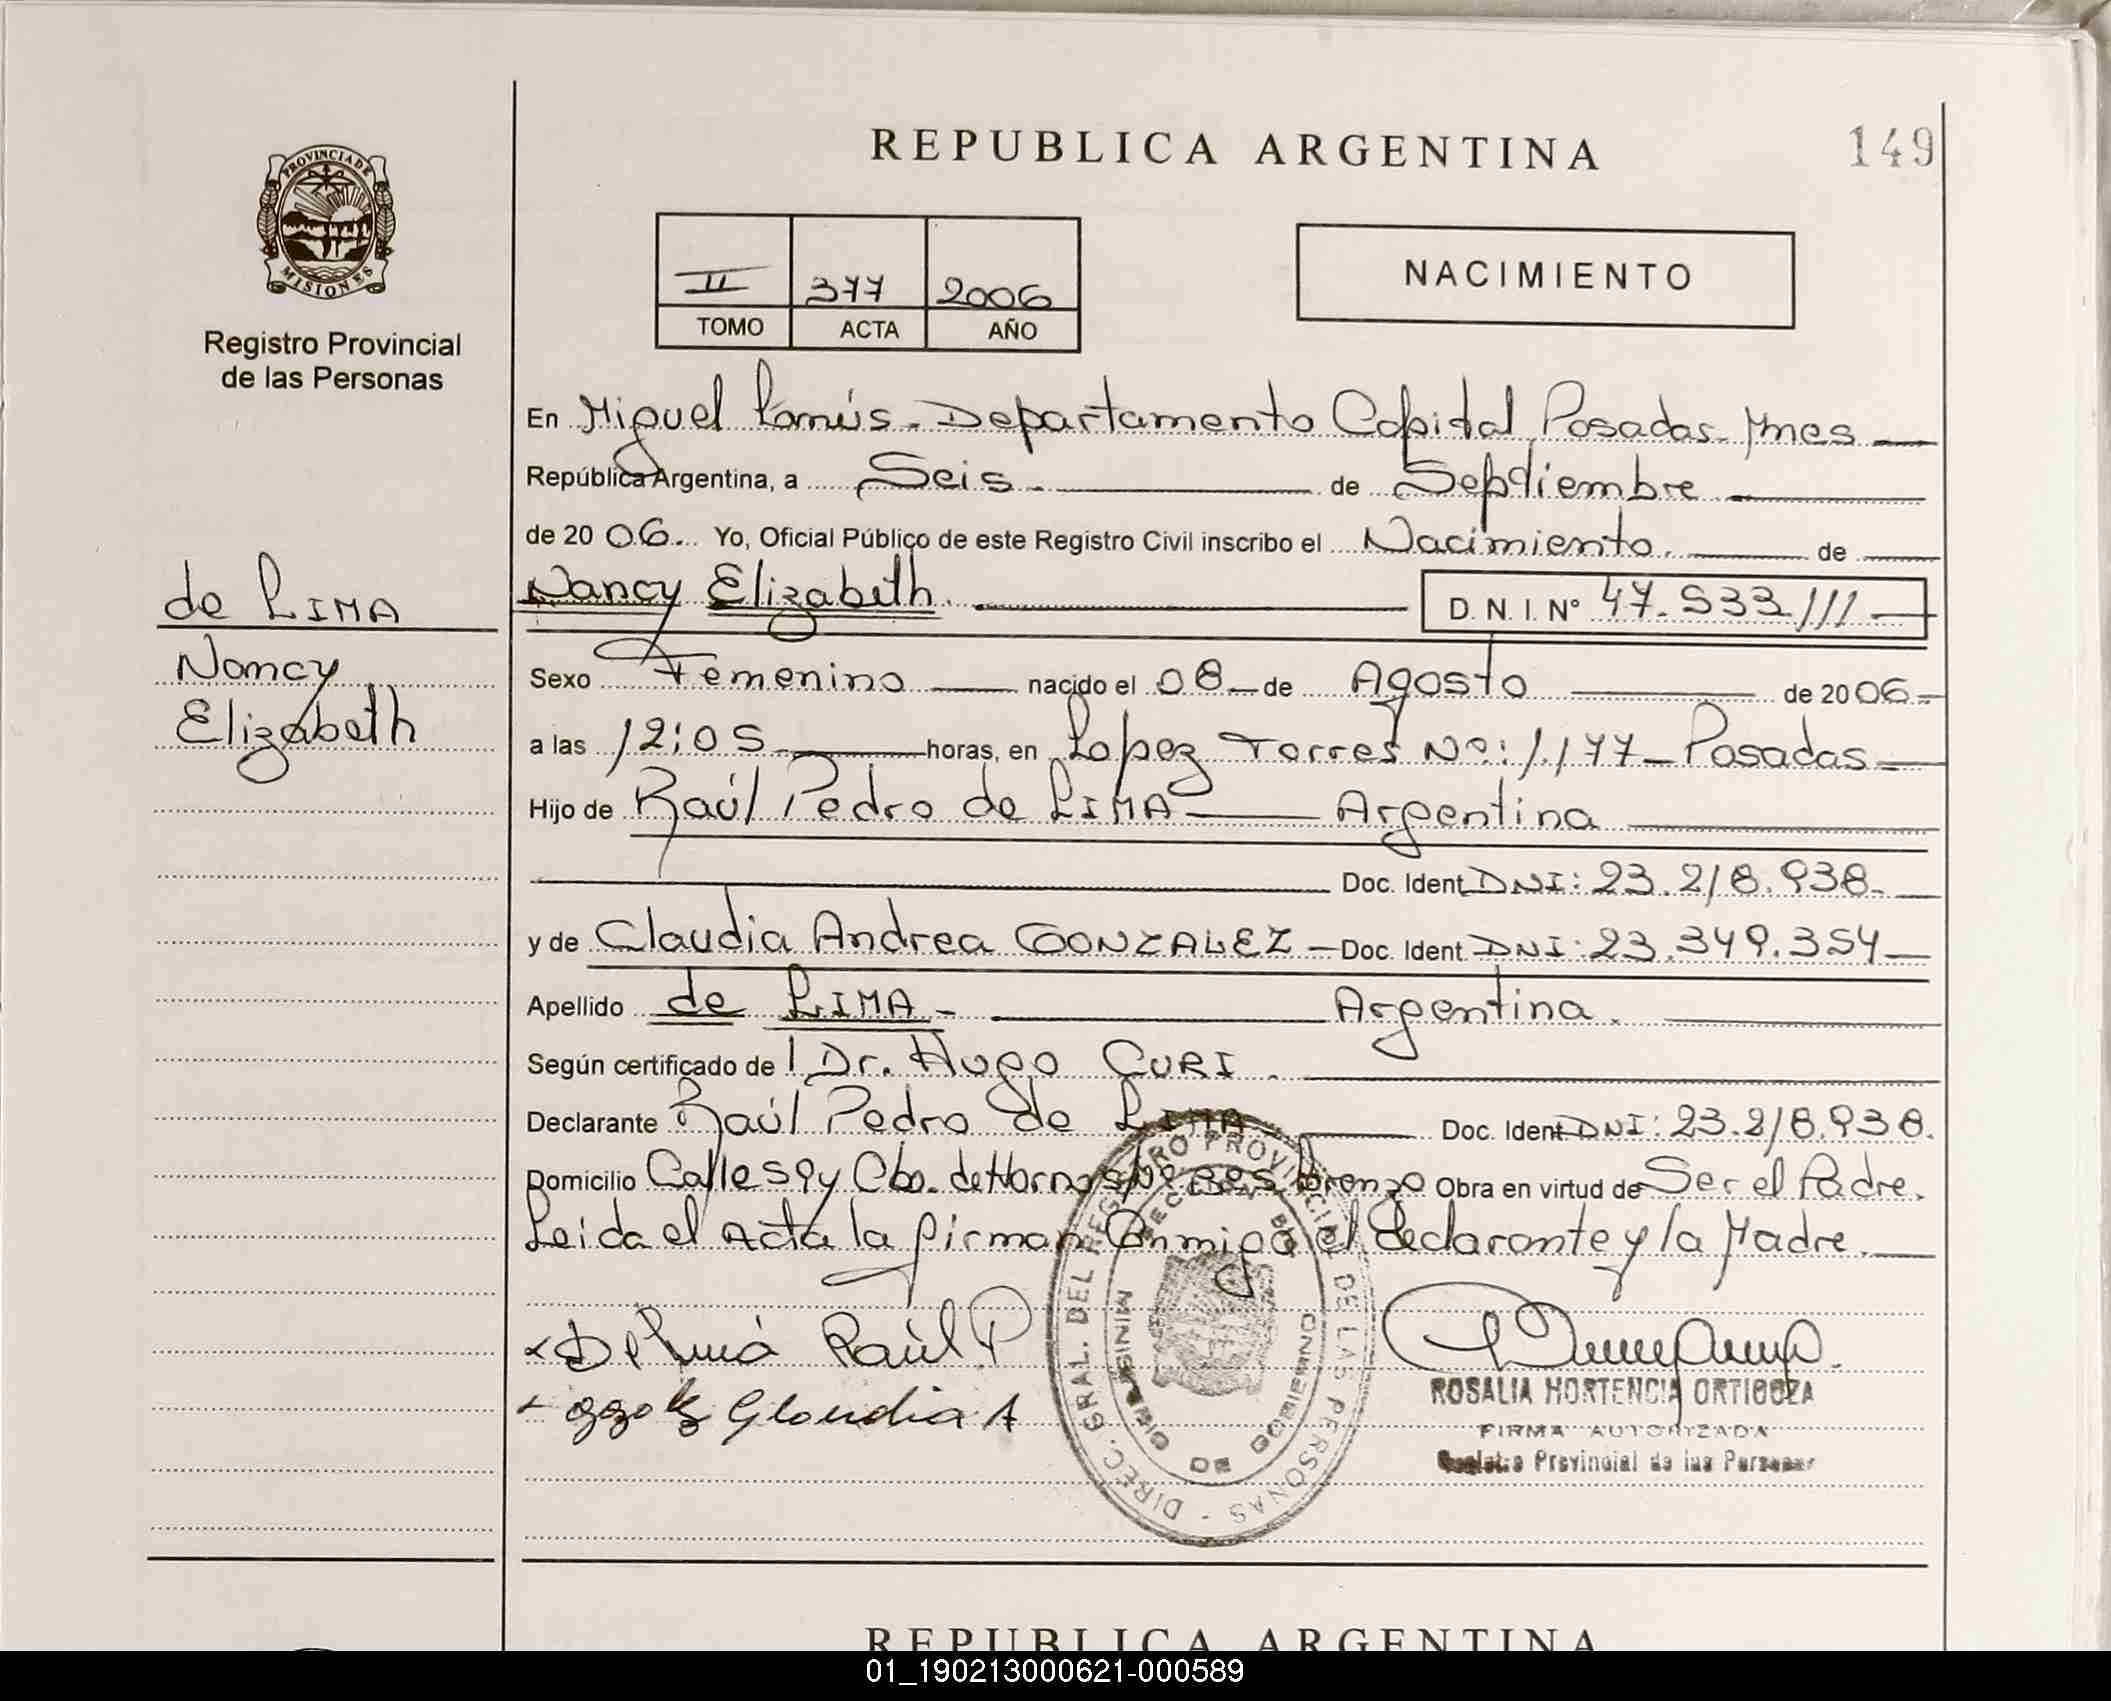 REPUBLICA ARGENTINA
149
PROVINCIA DE
MISIONES
Registro Provincial
de las Personas
II 377 2006
TOMO ACTA AÑO
NACIMIENTO
En Miguel Lanús - Departamento Capital Posadas - Mnes
República Argentina, a Seis de Septiembre
de 2006. Yo, Oficial Público de este Registro Civil inscribo el Nacimiento de
Nancy Elizabeth. D. N. I. N° 47.533.111
de LIMA
Nancy
Elizabeth
Sexo Femenino nacido el 08 de Agosto de 2006
a las 12:05 horas, en Lopez Torres No: 1.177 - Posadas
Hijo de Raúl Pedro de LIMA Argentina
Doc. Ident DNI: 23.218.938
y de Claudia Andrea GONZALEZ - Doc. Ident DNI: 23.349.354
Apellido de LIMA - Argentina.
Según certificado de Dr. Hugo CURI.
Declarante Raúl Pedro de LIMA Doc. Ident DNI: 23.218.938.
Domicilio Calle 59 y Cbo. de Hornos Lorenzo Obra en virtud de Ser el Padre.
Leida el Acta la firman Conmigo el declarante y la Madre.
De Lima Raúl P
Claudia A
DIREC. GRAL. DEL REGISTRO PROVINCIAL DE LAS PERSONAS -
MINISTERIO DE GOBIERNO
ROSALIA HORTENCIA ORTIGOZA
FIRMA AUTORIZADA
Registro Provincial de las Personas
REPUBLICA ARGENTINA
01_190213000621-000589